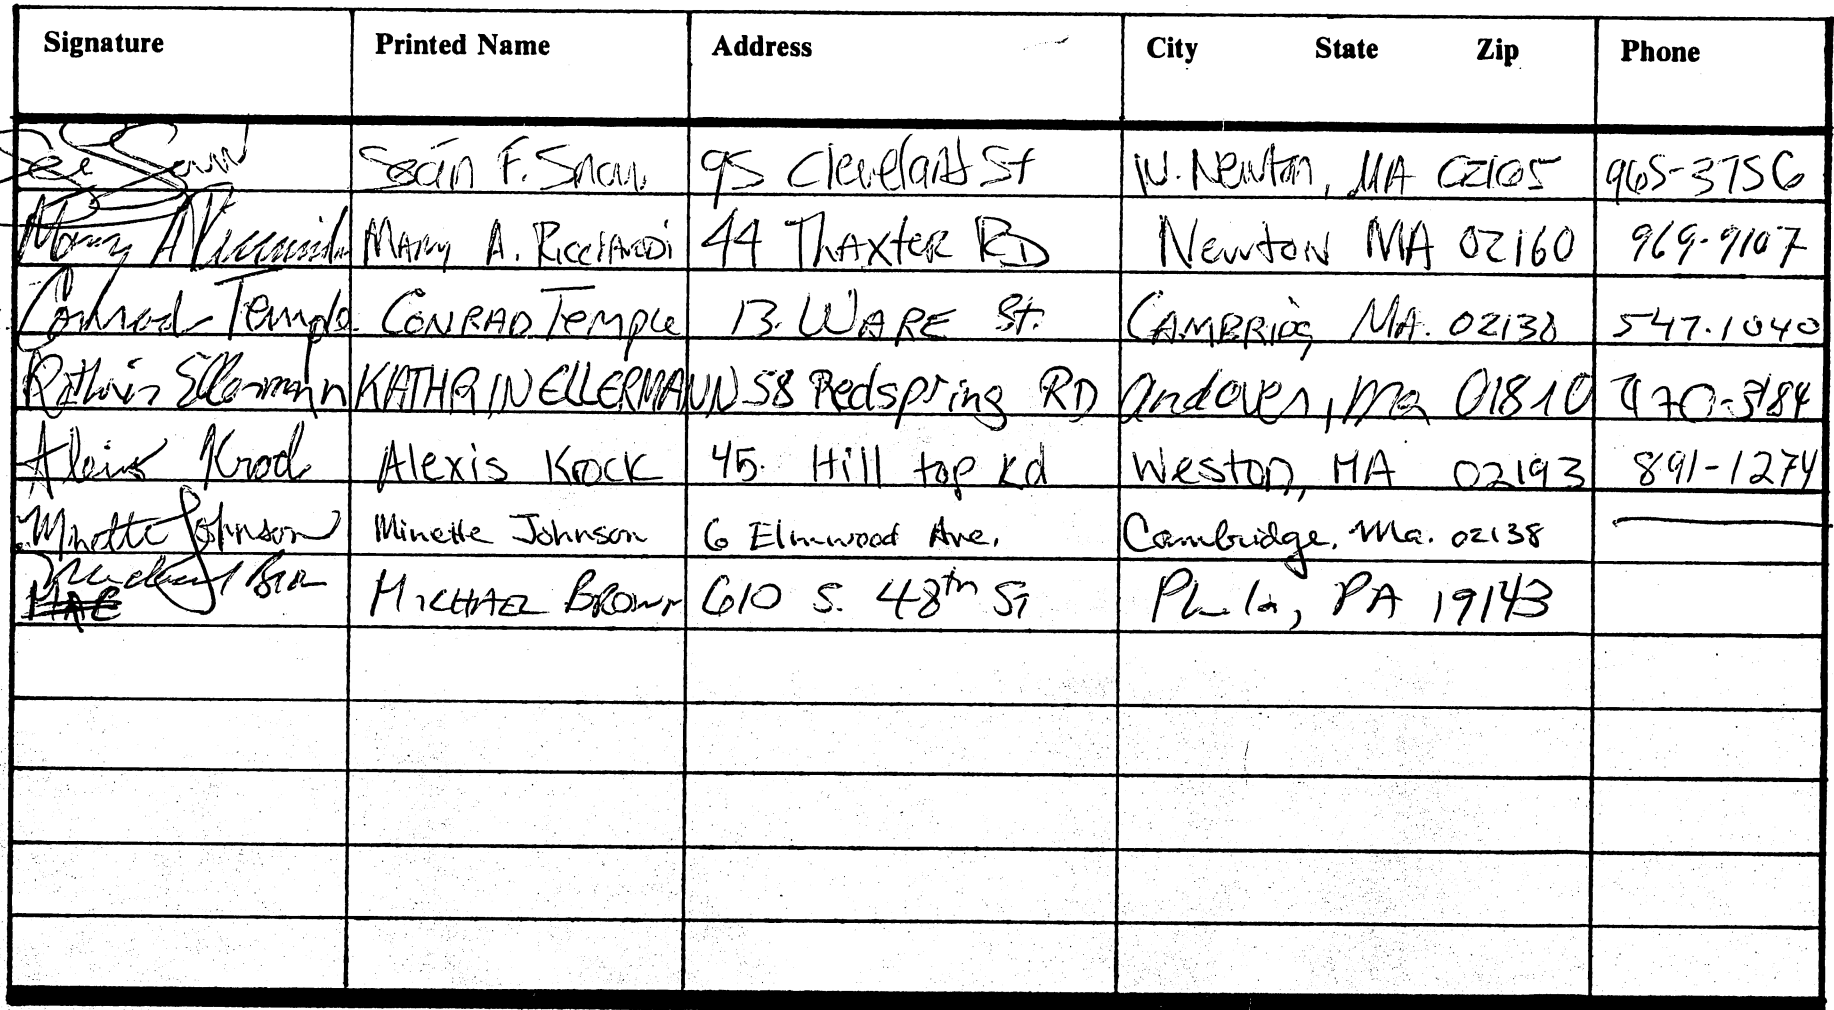 Signature Printed Name Address City State Zip Phone
Seán F. Snow 95 Cleveland St W. Newton, MA 02165 965-3756
Mary A. Ricciardi MARY A. RICCIARDI 44 THAXTER RD Newton MA 02160 969-9107
Conrad Temple CONRAD TEMPLE 13. WARE St. CAMBRIDG MA. 02138 547.1040
Kathrin Ellermann KATHRIN ELLERMANN 58 Redspring RD Andover, Ma 01810 470-3184
Alexis Krock Alexis Krock 45. Hill top Rd Weston, MA 02193 891-1274
Minette Johnson Minette Johnson 6 Elmwood Ave. Cambridge, Ma. 02138
Michael Brown MICHAEL BROWN 610 S. 48th St Phila, PA 19143